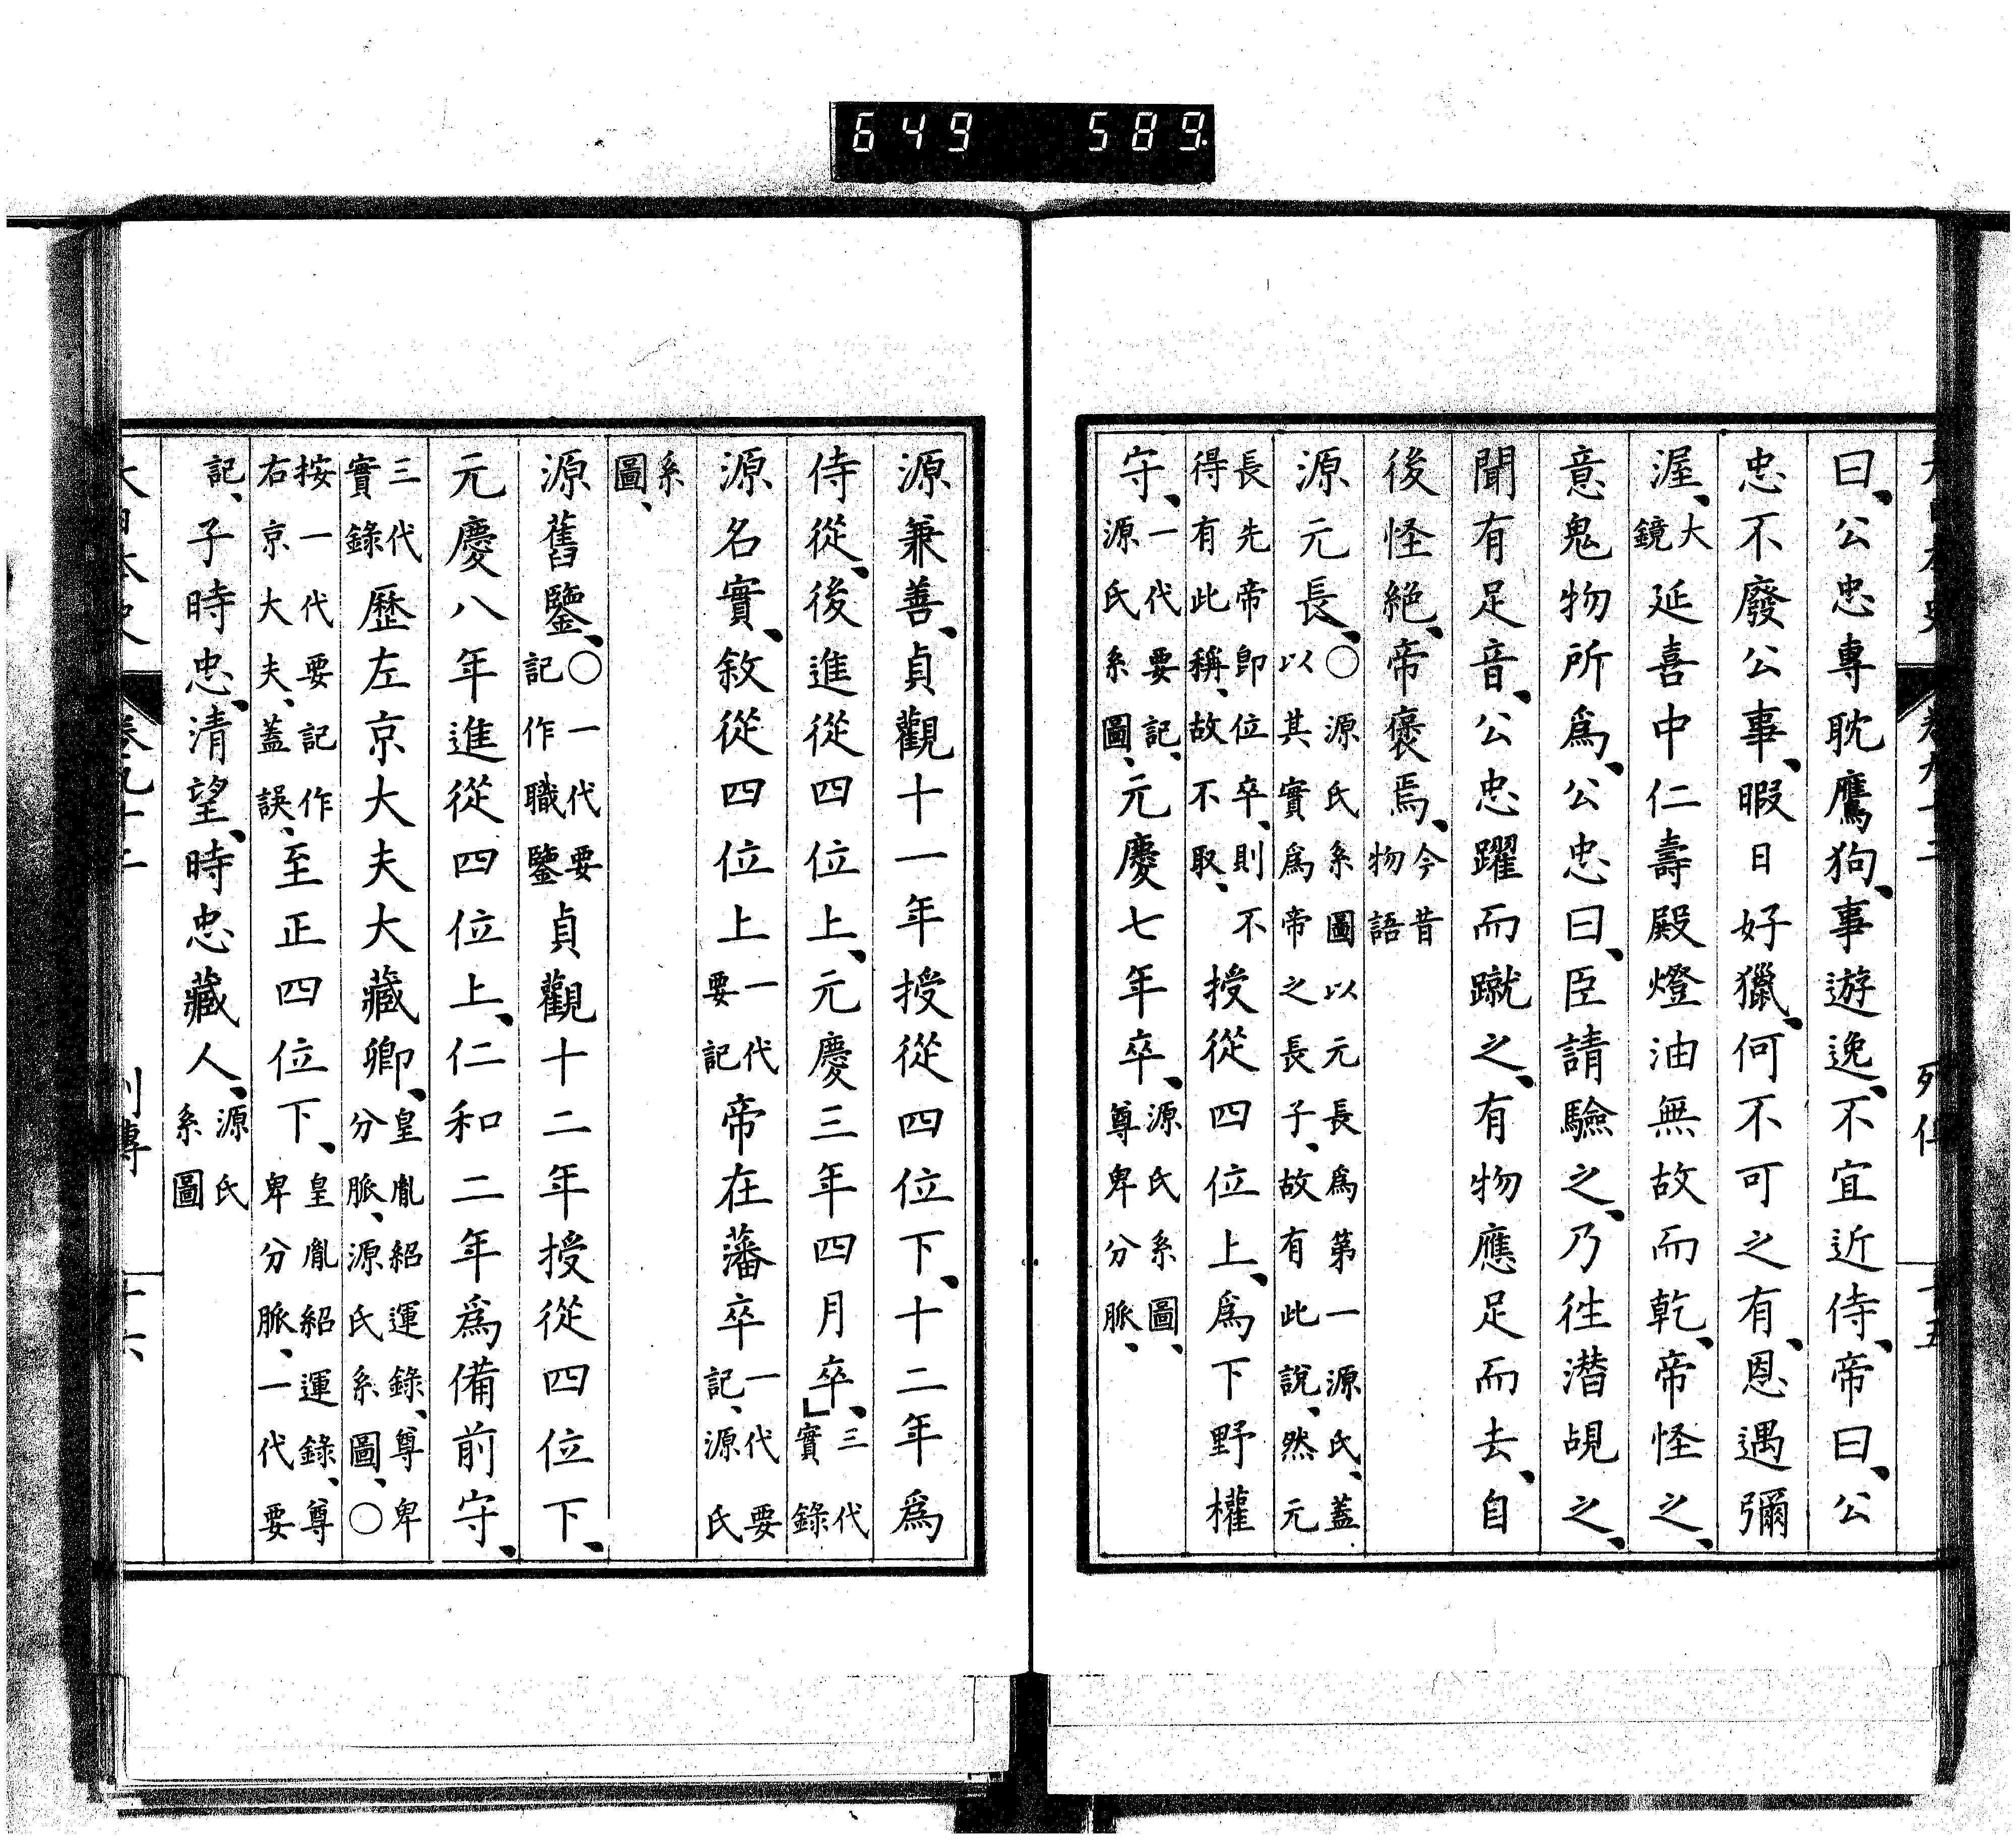 649 589.
曰、公忠專耽鷹狗、事遊逸、不宜近侍、帝曰、公
忠不廢公事、暇日好獵、何不可之有、恩遇彌
渥、大鏡延喜中仁壽殿燈油無故而乾、帝怪之、
意鬼物所爲、公忠曰、臣請驗之、乃往潛覘之、
聞有足音、公忠躍而蹴之、有物應足而去、自
後怪絕、帝襃焉、今昔物語
源元長、○源氏系圖以元長爲第一源氏、蓋以其實爲帝之長子、故有此說、然元
長先帝卽位卒、則不得有此稱、故不取、授從四位上、爲下野權
守、一代要記、源氏系圖、元慶七年卒、源氏系圖、尊卑分脈、
源兼善、貞觀十一年授從四位下、十二年爲
侍從、後進從四位上、元慶三年四月卒、」三代實錄
源名實、敘從四位上一代要記帝在藩卒一代要記、源氏
系圖、
源舊鑒、○一代要記作職鑒貞觀十二年授從四位下、
元慶八年進從四位上、仁和二年爲備前守、
三代實錄歷左京大夫大藏卿、皇胤紹運錄、尊卑分脈、源氏系圖、○
按一代要記作右京大夫、蓋誤、至正四位下、皇胤紹運錄、尊卑分脈、一代要
記、子時忠、清望、時忠藏人、源氏系圖